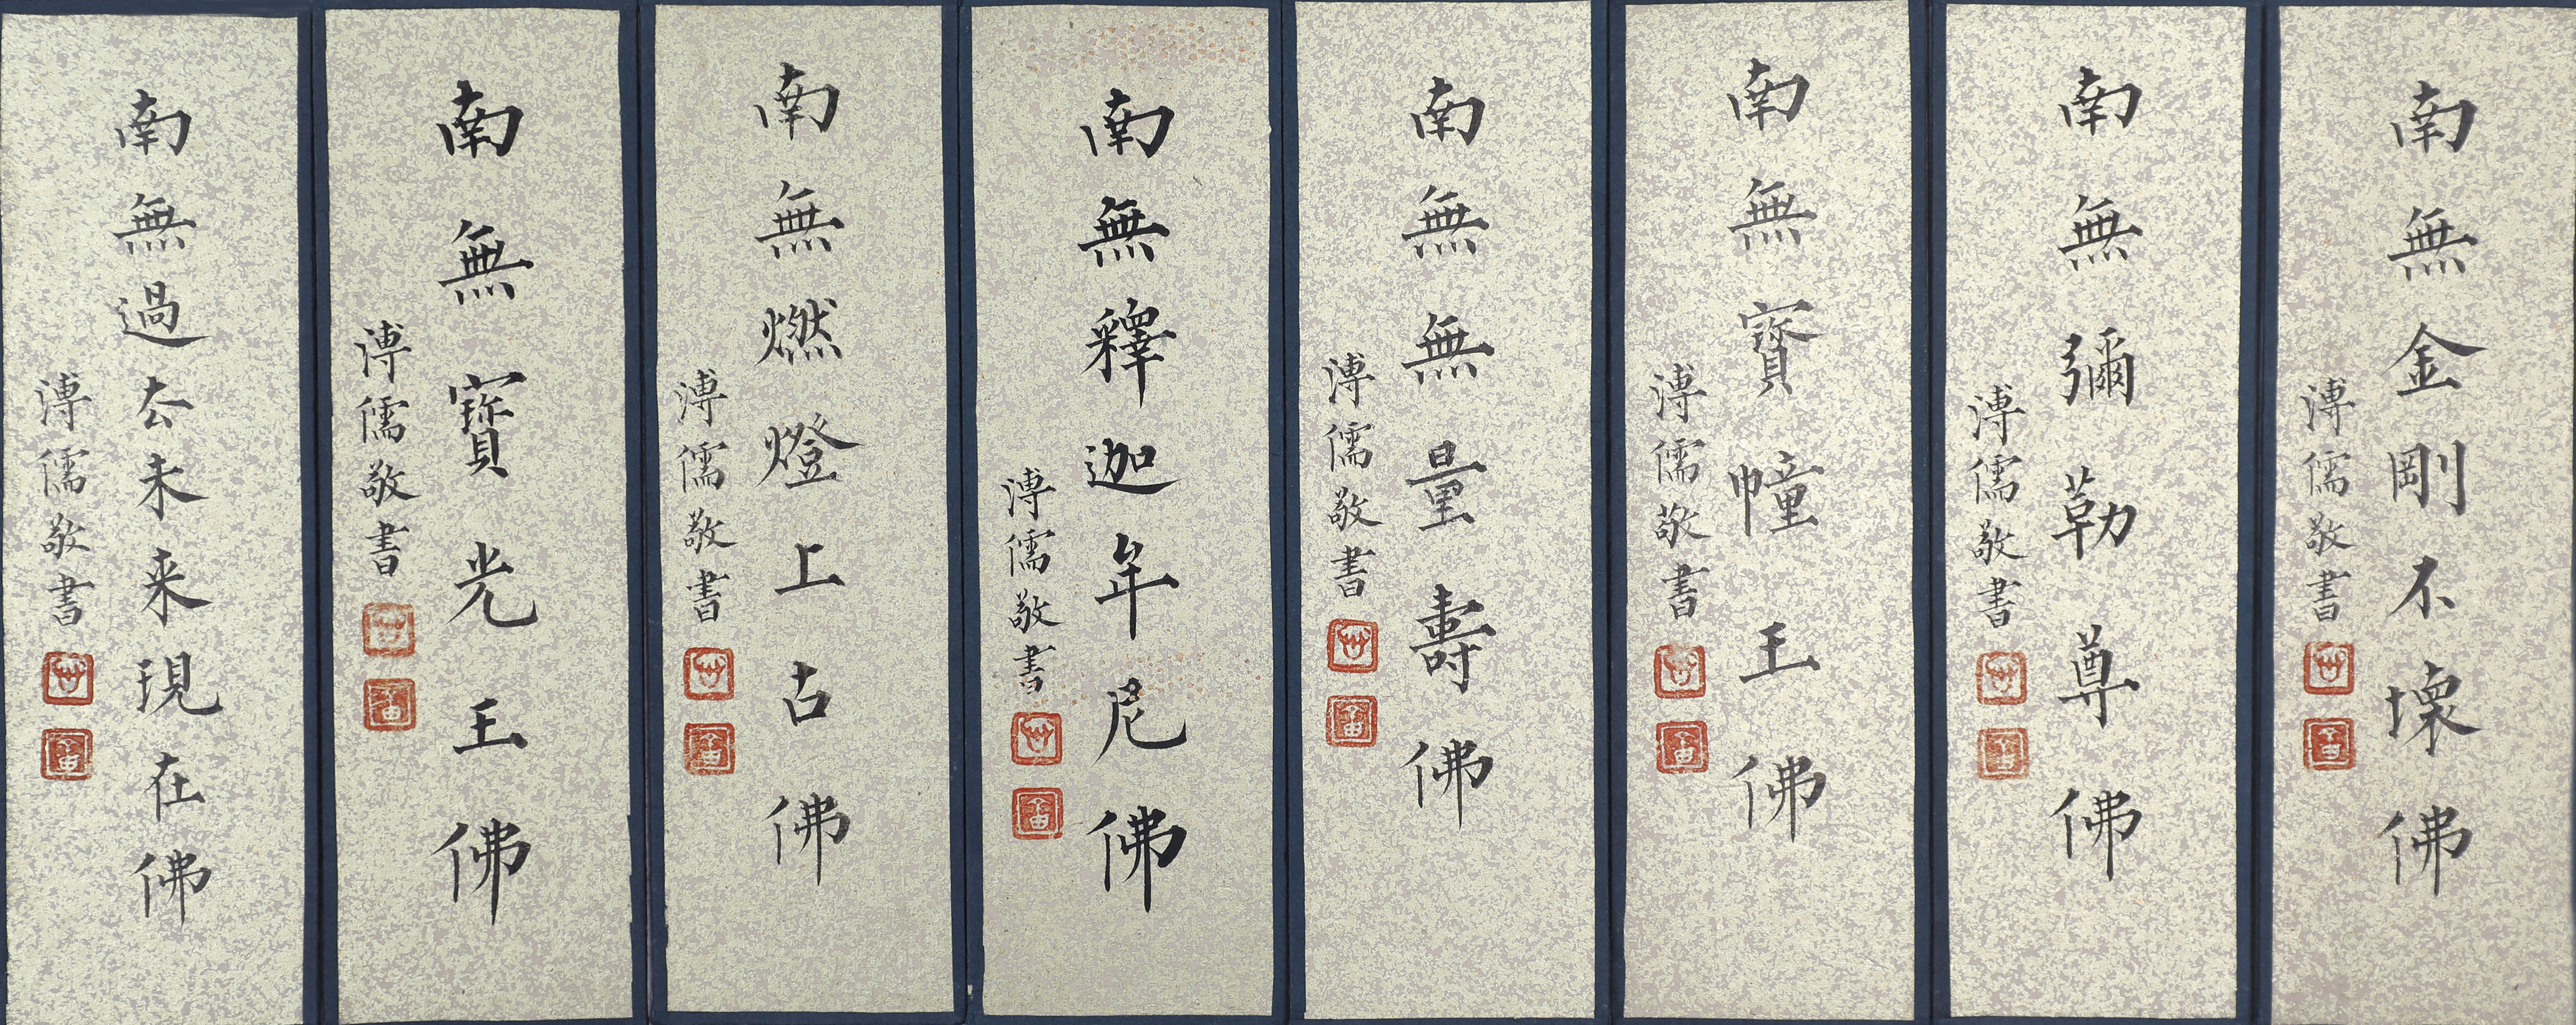 南無金剛不壞佛
溥儒敬書
南無彌勒尊佛
溥儒敬書
南無寳幢王佛
溥儒敬書
南無無量壽佛
溥儒敬書
南無釋迦牟尼佛
溥儒敬書
南無燃燈上古佛
溥儒敬書
南無寳光王佛
溥儒敬書
南無過去未来現在佛
溥儒敬書